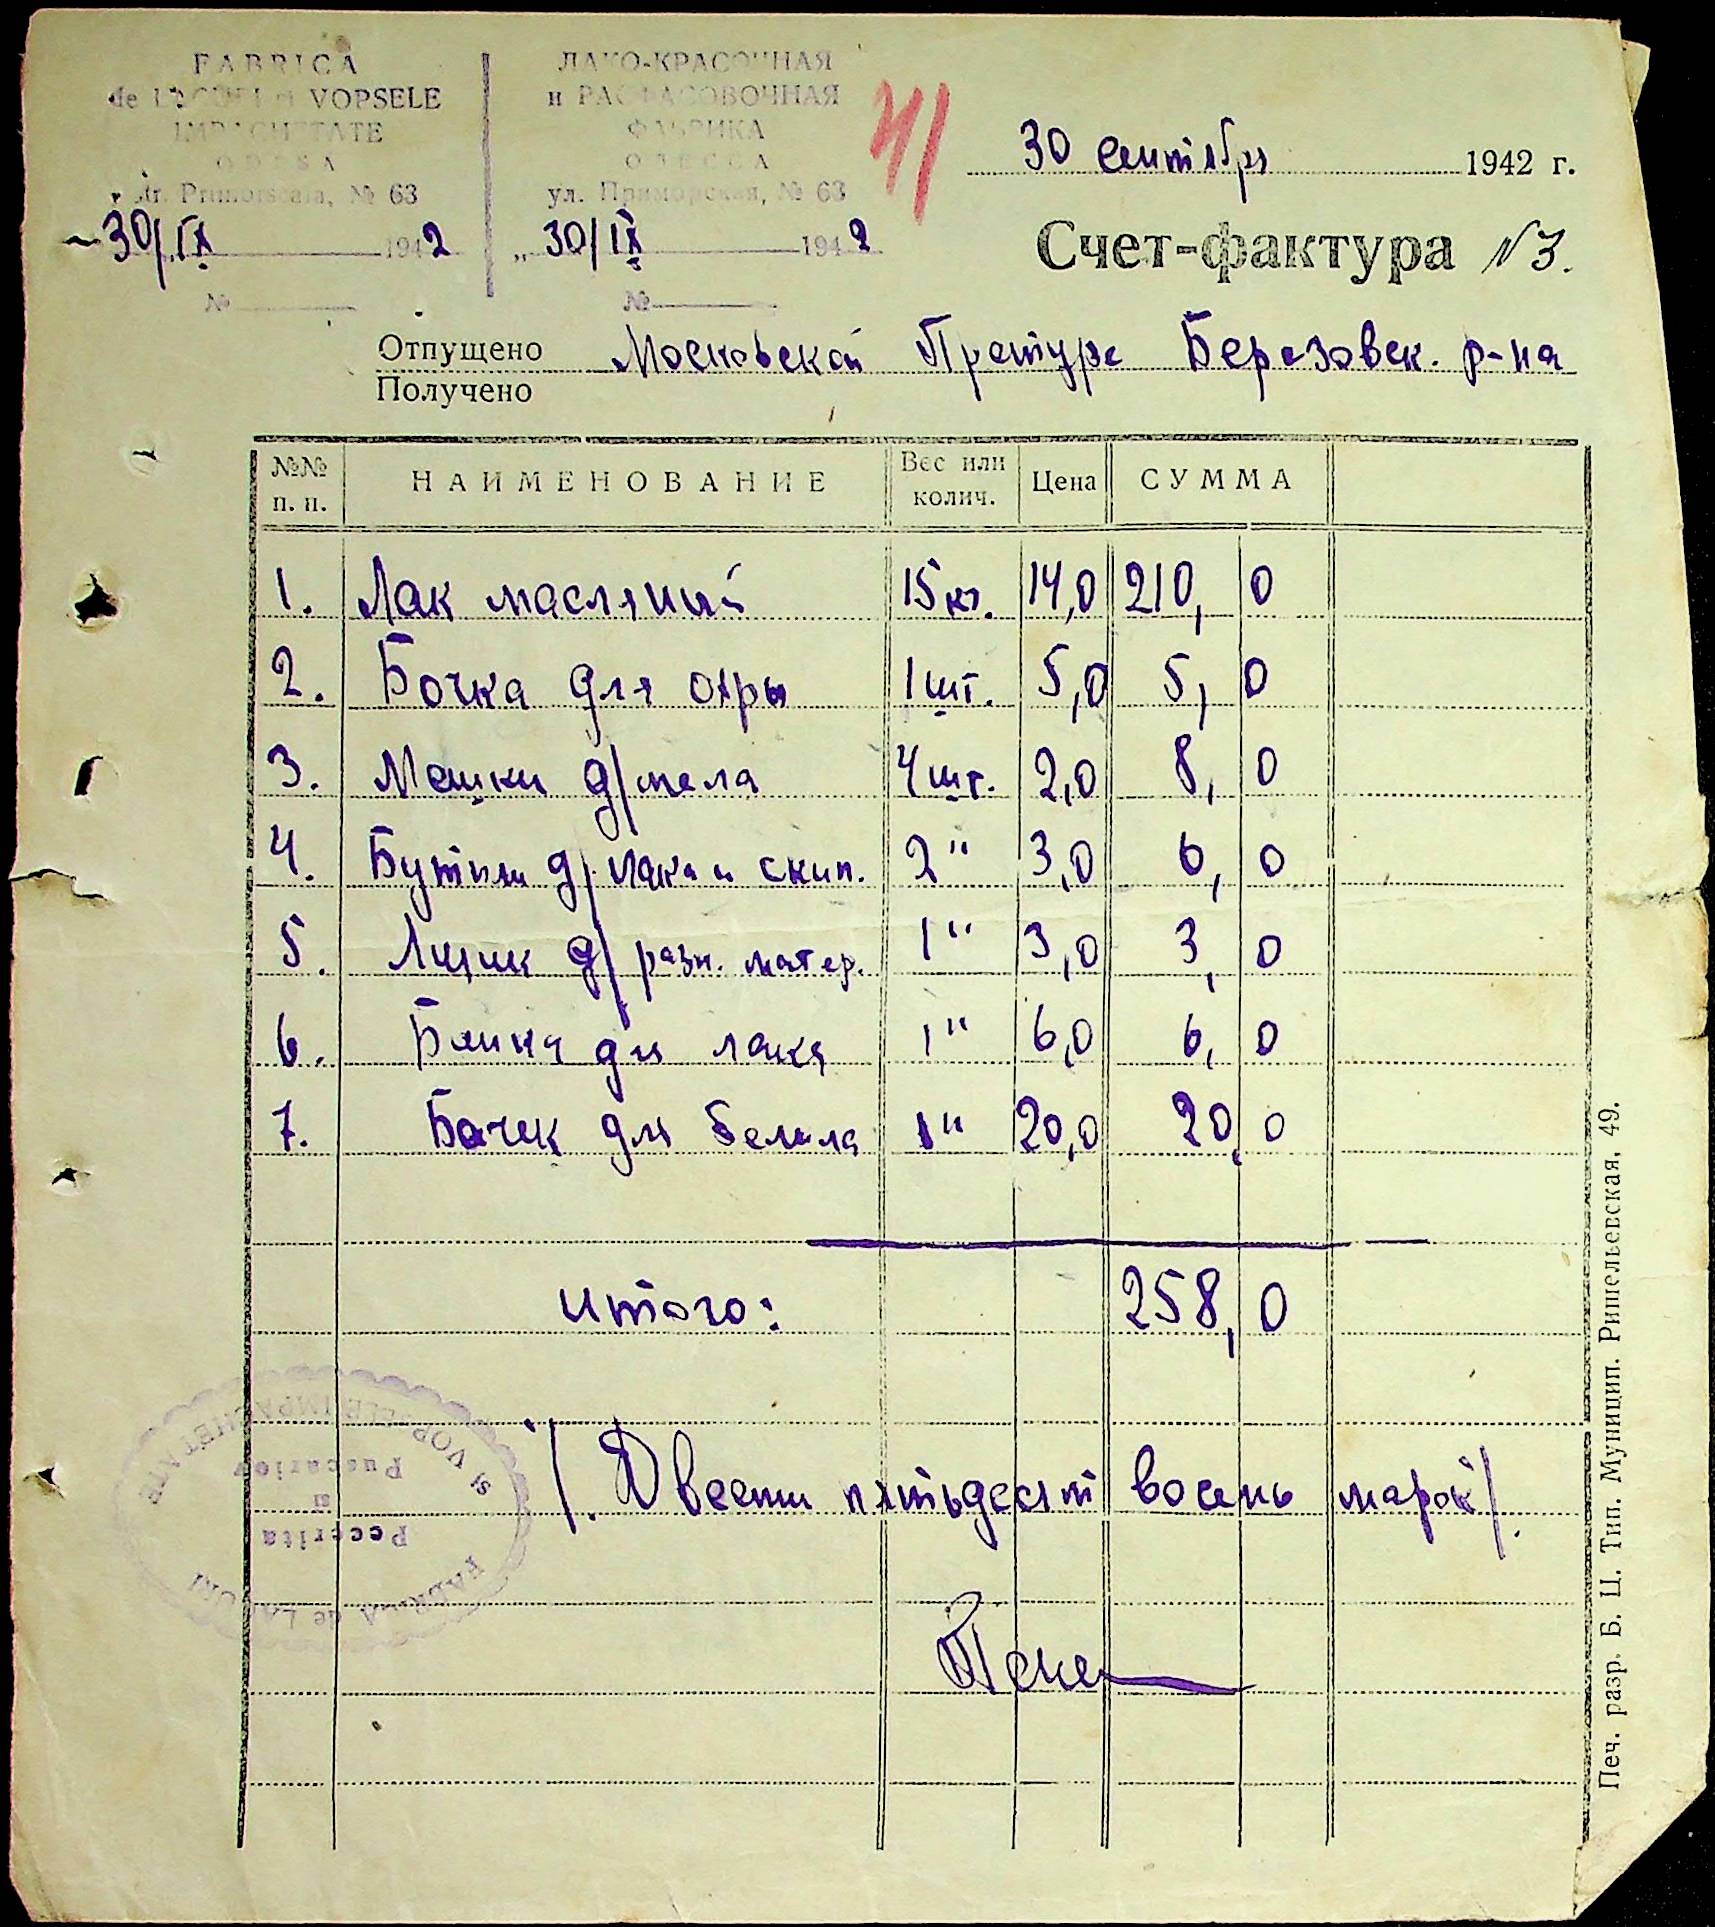 FABRICA
de LACURI si VOPSELE
IMPACHETATE
ODESA
str. Primorscaia, № 63
30/IX 1942
№
ЛАКО-КРАСОЧНАЯ
и РАСФАСОВОЧНАЯ
ФАБРИКА
ОДЕССА
ул. Приморская, № 63
„ 30/IX 1942
№
41
30 сентября 1942 г.
Счет-фактура N 3.
Отпущено Московской Претуре Березовск. р-на
Получено
№№ п. п. НАИМЕНОВАНИЕ Вес или колич. Цена СУММА
1. Лак масляный 15 кг. 14,0 210, 0
2. Бочка для охры 1 шт. 5,0 5, 0
3. Мешки д/мела 4 шт. 2,0 8, 0
4. Бутыли д/лака и скип. 2 " 3,0 6, 0
5. Ящик д/разн. матер. 1 " 3,0 3, 0
6. Банка для лака 1 " 6,0 6, 0
7. Бачек для белила 1 " 20,0 20, 0
Итого: 258, 0
/. Двести пятьдесят восемь марок/.
FABRICA de LACURI
si VOPSELE IMPACHETATE
Peccerita
si
Puscariov
Печ. разр. Б. Ц. Тип. Муницип. Ришельевская, 49.